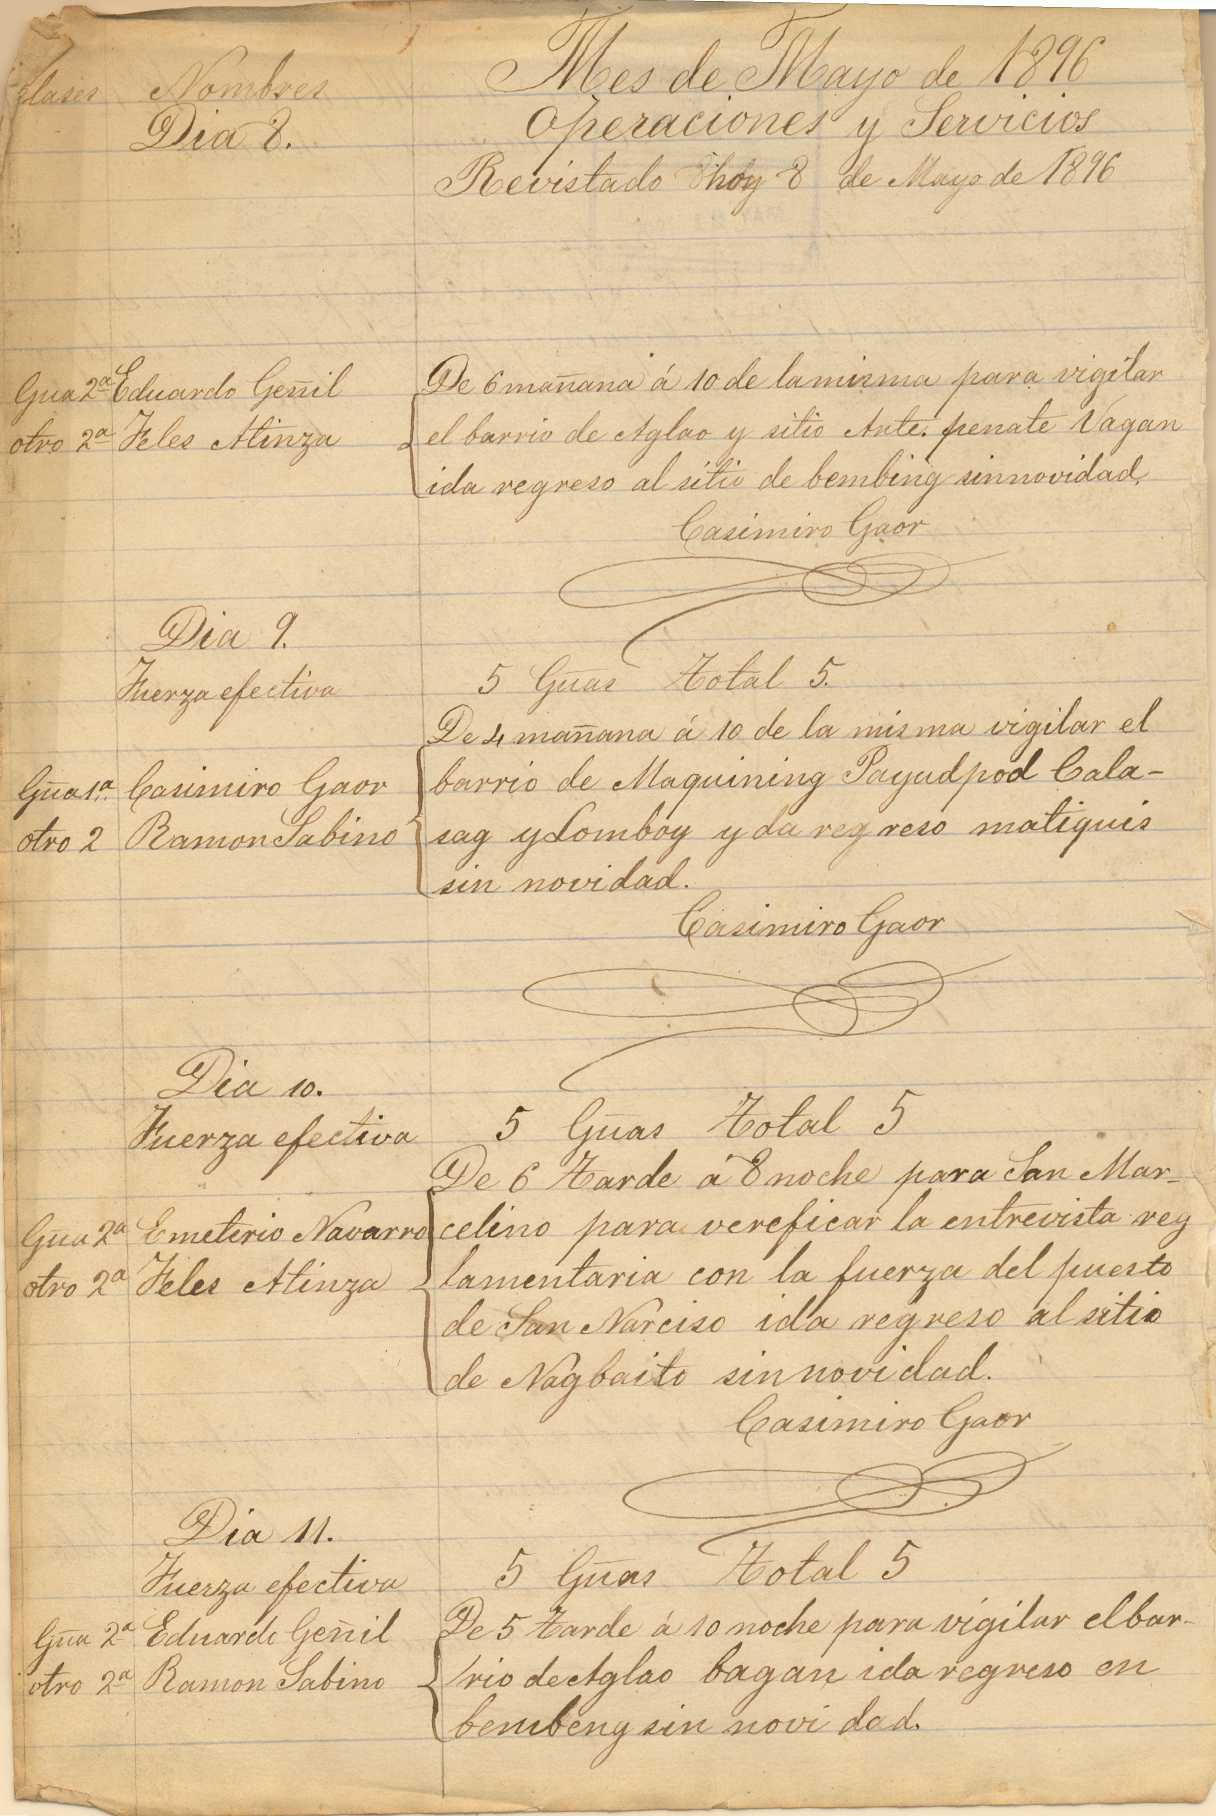 Clases Nombres Mes de Mayo de 1896
Dia 8. Operaciones y Servicios
Revistado hoy 8 de Mayo de 1896
Gua 2ª Eduardo Geñil De 6 mañana á 10 de la misma para vigilar
otro 2ª Feles Atinza el barrio de Aglao y sitio Ante. penate Vagan
ida regreso al sitio de bembing sin novidad.
Casimiro Gaor
Dia 9.
Fuerza efectiva 5 Gũas Total 5.
De 4 mañana á 10 de la misma vigilar el
Gũa 1ª Casimiro Gaor barrio de Maquining Payudpod Cala-
otro 2 Ramon Sabino sag y Lomboy y da regreso matiquis
sin novidad.
Casimiro Gaor
Dia 10.
Fuerza efectiva 5 Gũas Total 5
De 6 Tarde á 8 noche para San Mar-
Gũa 2ª Emeterio Navarro celino para vereficar la entrevista reg
otro 2ª Feles Atinza lamentaria con la fuerza del puesto
de San Narciso ida regreso al sitio
de Nagbaito sin novidad.
Casimiro Gaor
Dia 11.
Fuerza efectiva 5 Gũas Total 5
Gũa 2ª Eduardo Geñil De 5 Tarde á 10 noche para vigilar el bar-
otro 2ª Ramon Sabino rio de Aglao bagan ida regreso en
bembeng sin novidad.